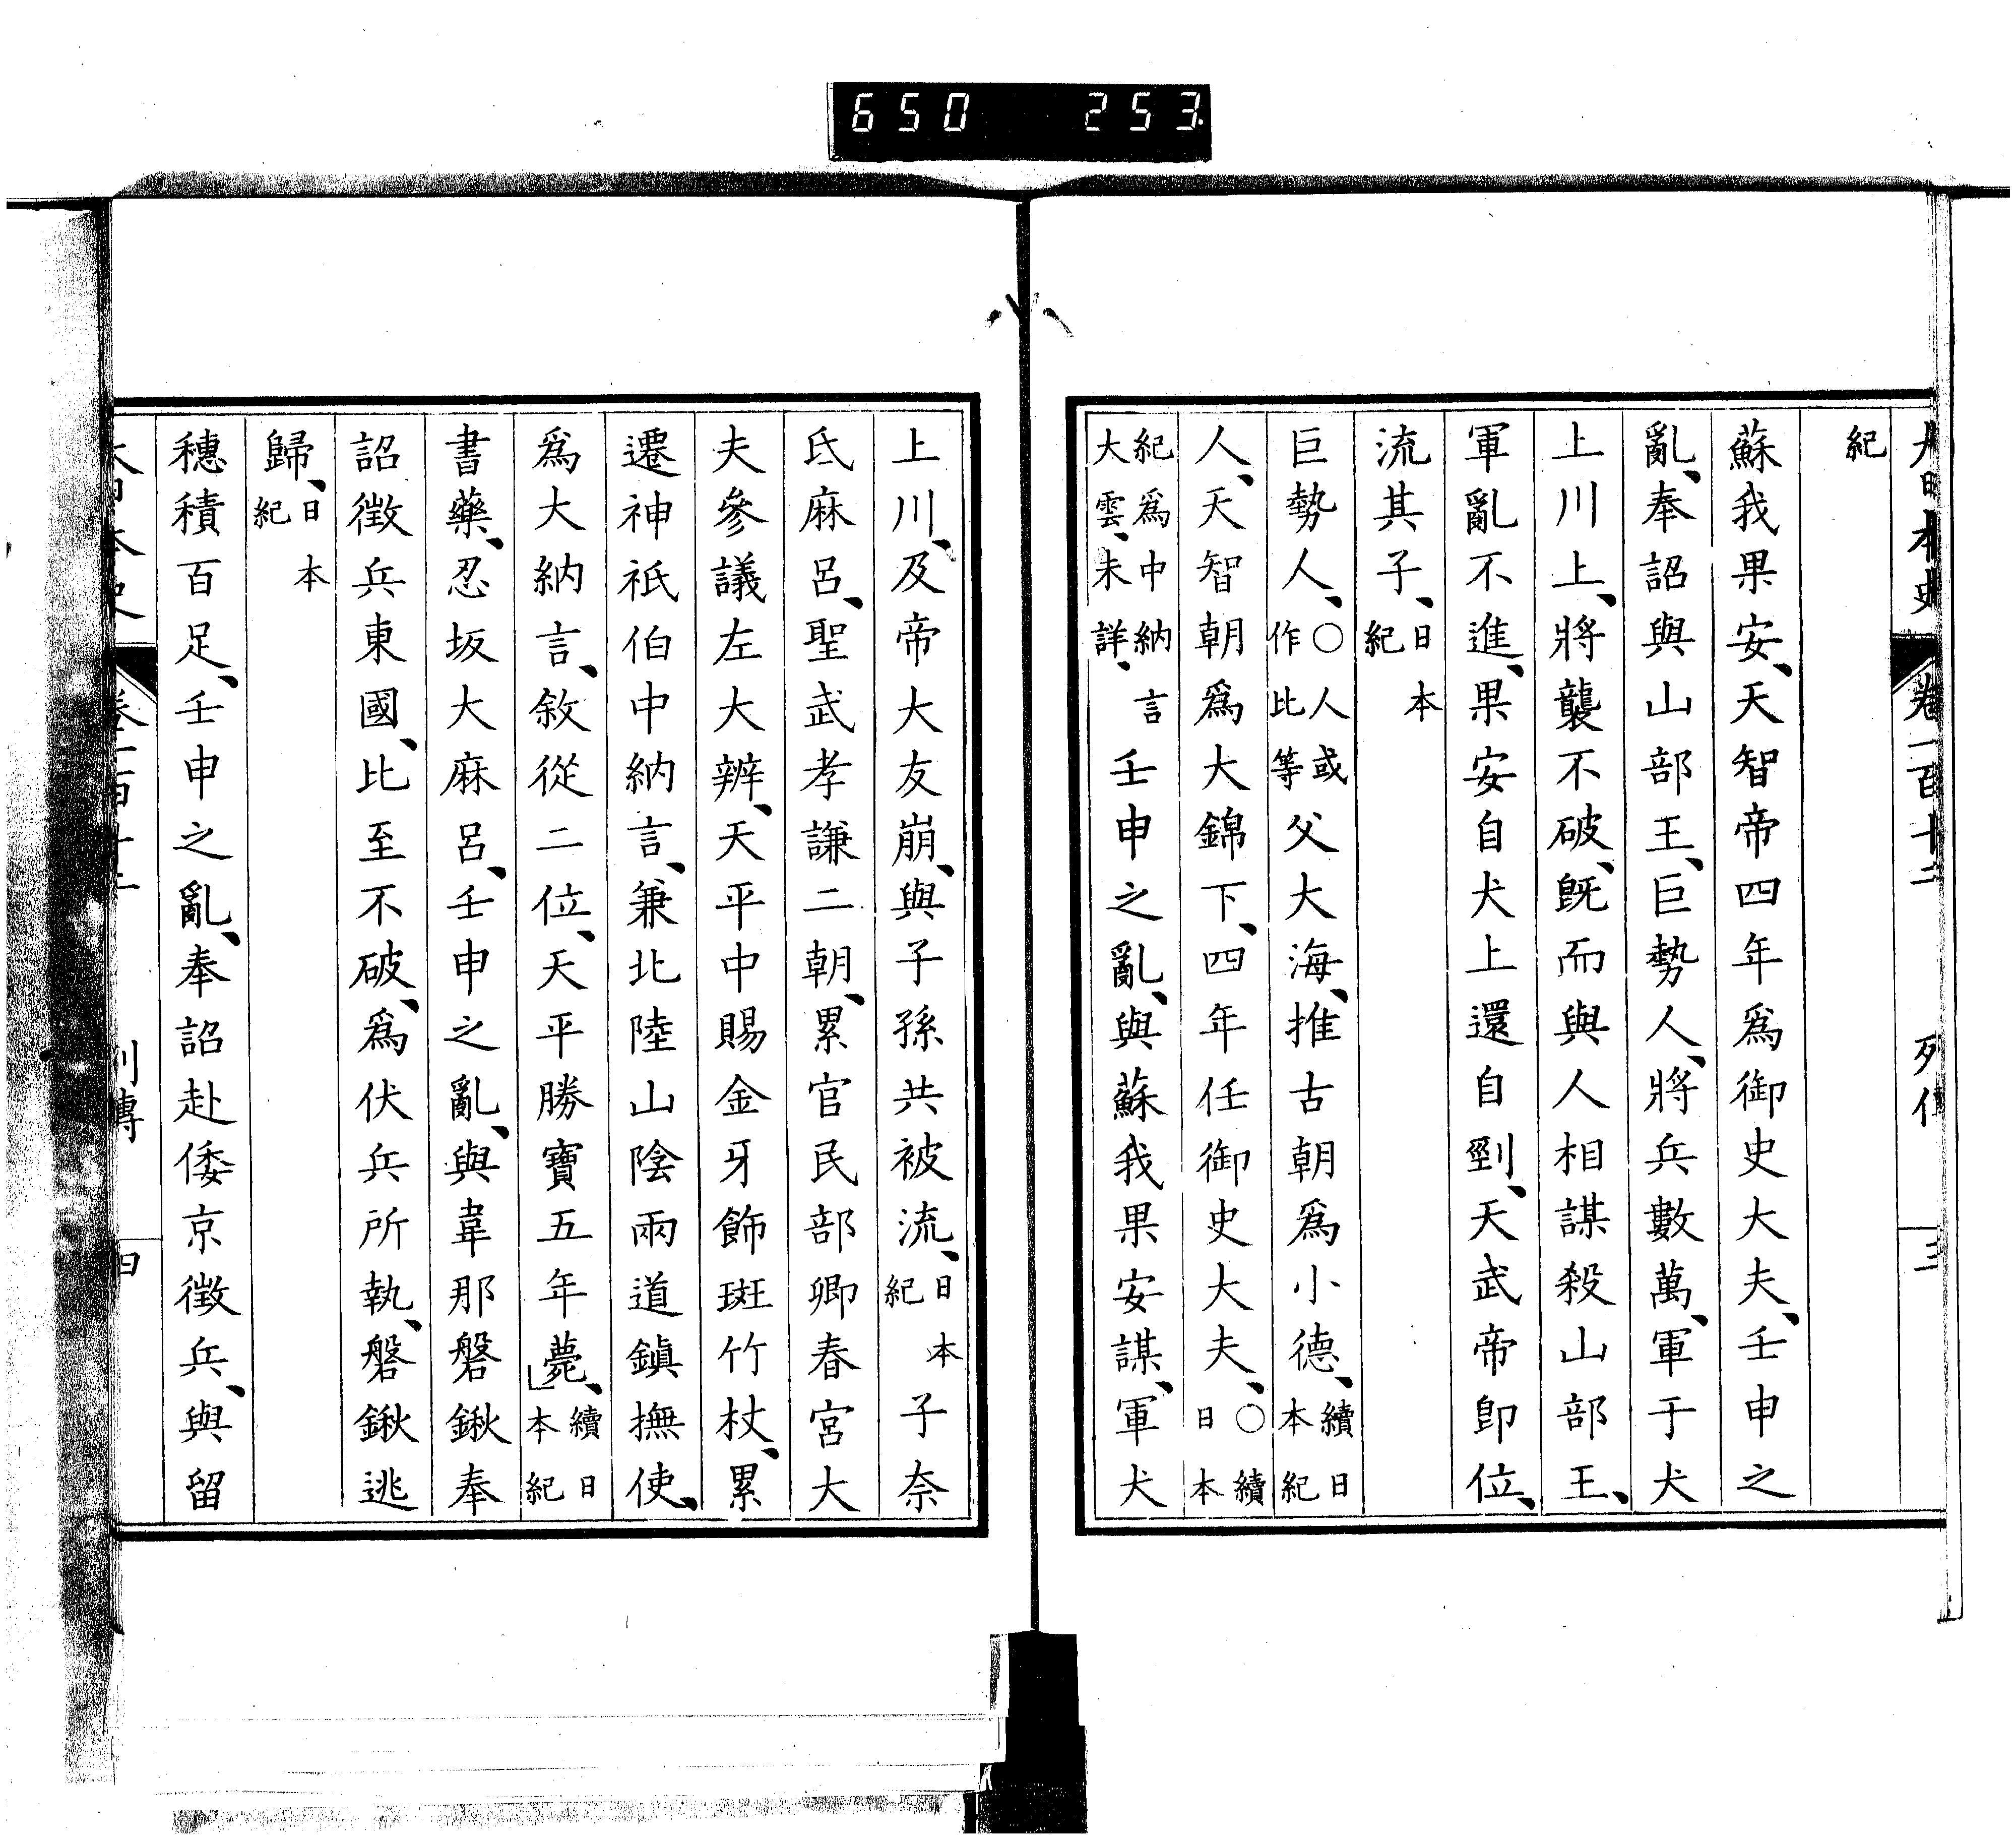 650 253
大日本史 卷一百十二 列傳 三
紀
蘇我果安、天智帝四年爲御史大夫、壬申之
亂、奉詔與山部王、巨勢人、將兵數萬、軍于犬
上川上、將襲不破、旣而與人相謀殺山部王、
軍亂不進、果安自犬上還自剄、天武帝卽位、
流其子、日本紀
巨勢人、○人或作比等父大海、推古朝爲小德、續日本紀
人、天智朝爲大錦下、四年任御史大夫、○續日本
紀爲中納言大雲、未詳、壬申之亂、與蘇我果安謀、軍犬
上川、及帝大友崩、與子孫共被流、日本紀子奈
氐麻呂、聖武孝謙二朝、累官民部卿春宮大
夫參議左大辨、天平中賜金牙飾斑竹杖、累
遷神祇伯中納言、兼北陸山陰兩道鎭撫使、
爲大納言、敘從二位、天平勝寶五年薨、續日本紀
書藥、忍坂大麻呂、壬申之亂、與韋那磐鍬奉
詔徵兵東國、比至不破、爲伏兵所執、磐鍬逃
歸、日本紀
穗積百足、壬申之亂、奉詔赴倭京徵兵、與留
大日本史 卷一百十二 列傳 四